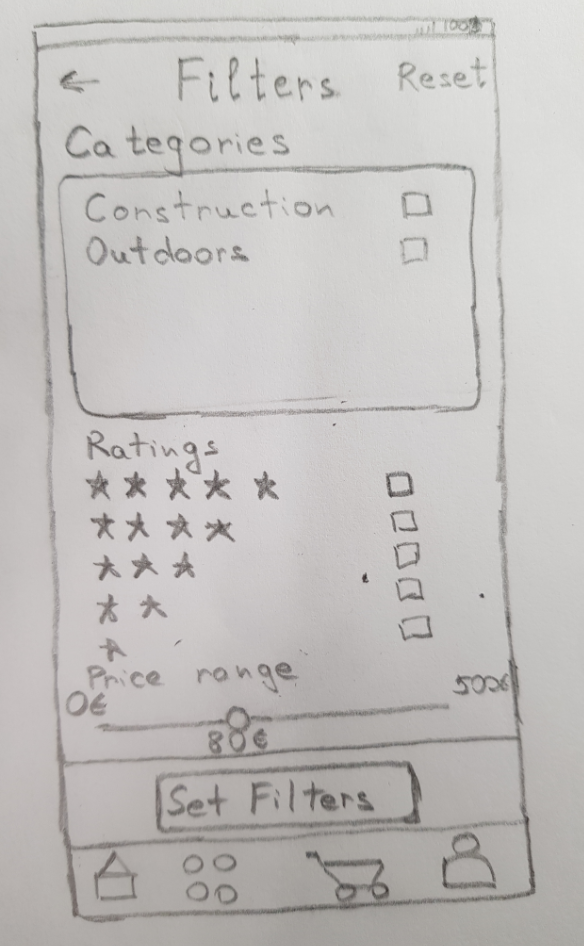 100%
← Filters Reset
Categories
Construction
Outdoors
Ratings
Price range
0€ 500€
80€
Set Filters